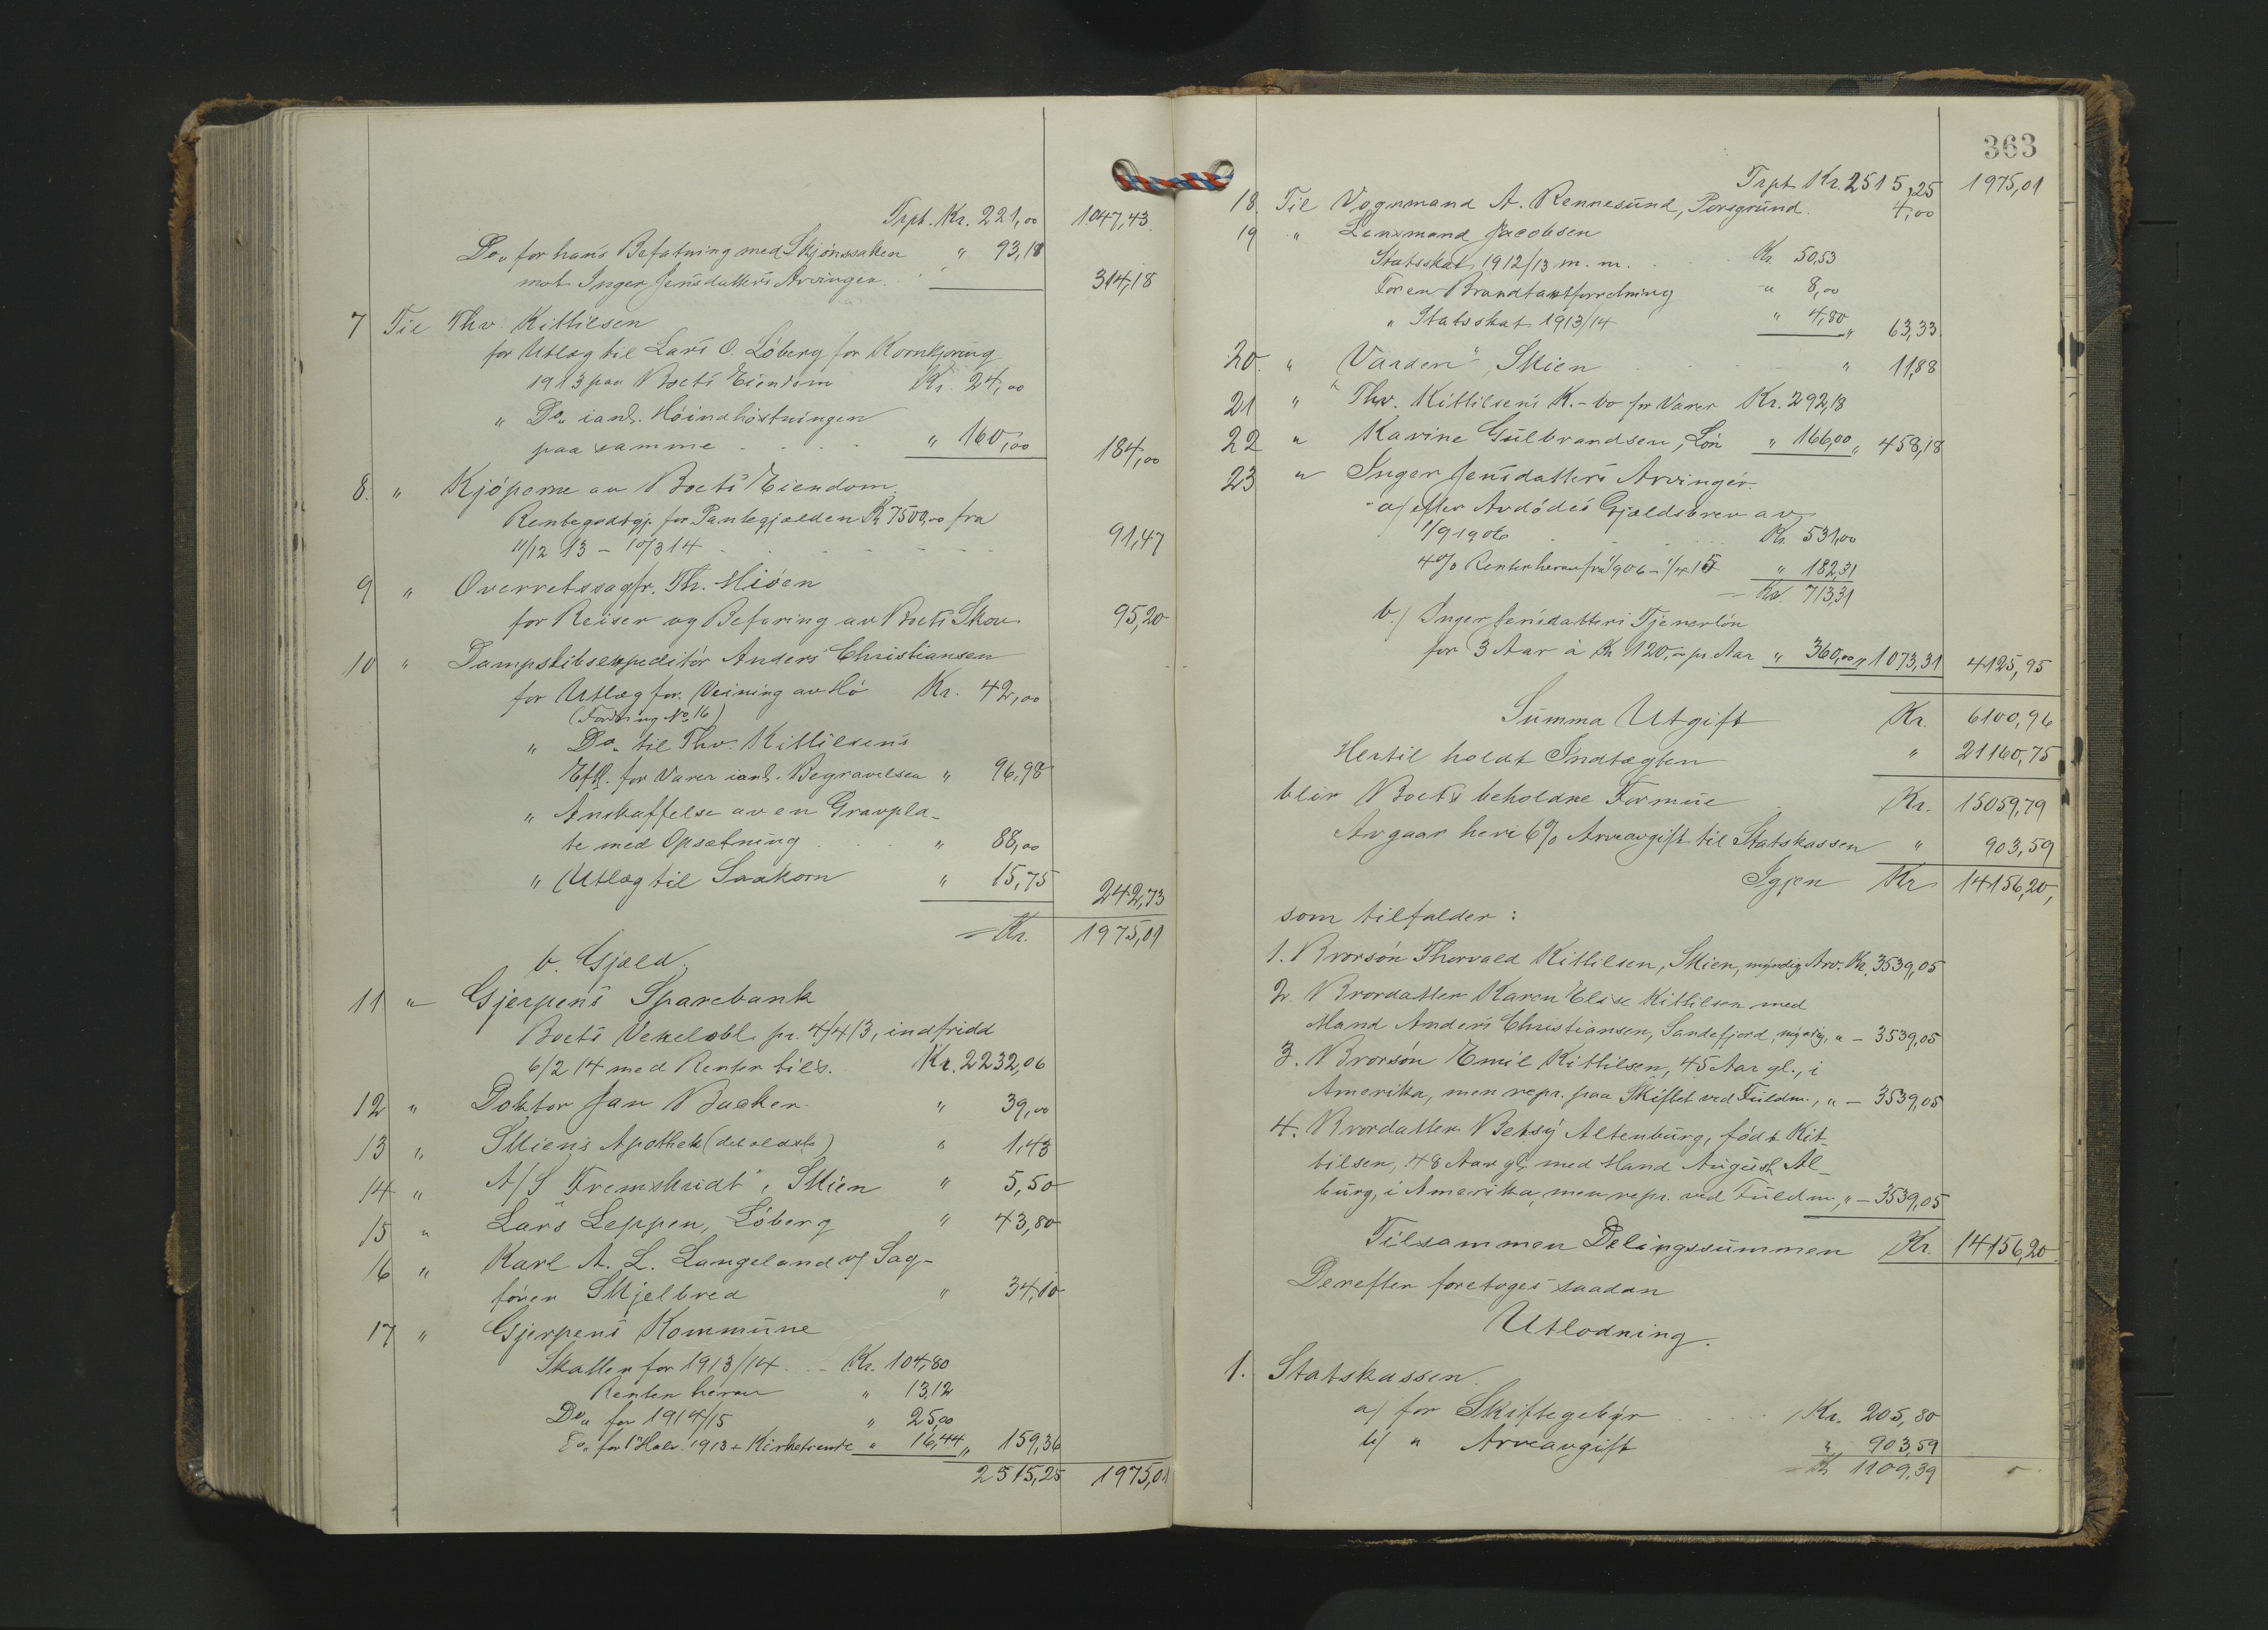 Trpt. Kr. 221,00 1047,43
Do„ for hans Befatning med Skjønssaken „ 93,18
mot Inger Jensdatters Arvinger. 314,18
7 Til Thv. Kittilsen
for Utlæg til Lars O. Löberg for Kornkjøring
1913 paa Boets Eiendom Kr. 24,00
„ Do„ ianl. Höiindhöstningen
paa samme „ 160,00 184,00
8. „ Kjöperne av Boets Eiendom
Rentegodtgj. for Pantegjælden Kr 7500,00 fra
11/12 13 – 10/3 14 91,47
9 „ Overretssagfr. Th. Miöen
for Reiser og Befaring av Boets Skov 95,20
10 „ Dampskibsexpeditör Anders Christiansen
for Utlæg for Veining av Hö Kr. 42,00
(Fordring No 16)
„ Do„ til Thv. Kittilsens
Eftf. for Varer ianl. Begravelsen „ 96,98
„ Anskaffelse av en Gravpla-
te med Opsætning „ 88,00
„ Utlæg til Saakorn „ 15,75 242,73
Kr. 1975,01
b. Gjæld.
11 „ Gjerpens Sparebank
Boets Vekselobl. pr. 4/4 13, indfridd
6/2 14 med Renter tils. Kr. 2232,06
12 „ Doktor Jan Backer „ 39,00
13 „ Skiens Apothek (det ældste) „ 1,43
14 „ A/S „Fremskridt", Skien „ 5,50
15 „ Lars Leppen, Löberg „ 43,80
16 „ Karl A. L. Langeland v/ Sag-
förer Skjelbred „ 34,10
17 „ Gjerpens Kommune
Skatten for 1913/14 Kr. 104,80
Renter herav „ 13,12
Do„ for 1914/15 „ 25,00
Do„ for 1' Halv. 1913 + Kirketiende „ 16,44 „ 159,36
2515,25 1975,01
363
Trpt. Kr. 2515,25 1975,01
18. Til Vognmand A. Rennesund, Porsgrund. 4,00
19 „ Lensmand Jacobsen
Statsskat 1912/13 m. m. Kr. 50,53
For en Brandtaxtforretning „ 8,00
„ Statsskat 1913/14 „ 4,80 „ 63,33
20. „ „Varden", Skien „ 11,88
21 „ Thv. Kittilsens K.-bo for Varer Kr. 292,18
22 „ Karine Gulbrandsen, Lön „ 166,00 „ 458,18
23 „ Inger Jensdatters Arvinger
a/ efter Avdödes Gjældsbrev av
1/9 1906 Kr. 531,00
4% Renter herav fra 1/9 06 – 1/4 15 „ 182,31
Kr. 713,31
b./ Inger Jensdatters Tjenerlön
for 3 Aar à Kr 120,00 pr. Aar „ 360,00 „ 1073,31 4125,95
Summa Utgift Kr. 6100,96
Hertil holdt Indtægten „ 21160,75
blir Boets beholdne Formue Kr. 15059,79
Avgaar heri 6% Arveavgift til Statskassen „ 903,59
Igjen Kr 14156,20,
som tilfalder:
1. Brorsön Thorvald Kittilsen, Skien, myndig Arv. Kr. 3539,05
2. Brordatter Karen Elise Kittilsen med
Mand Anders Christiansen, Sandefjord, myndig, „ – 3539,05
3. Brorsön Emil Kittilsen, 45 Aar gl., i
Amerika, men repr. paa Skiftet ved Fuldm., „ – 3539,05
4. Brordatter Betsy Altenburg, födt Kit-
tilsen, 48 Aar gl, med Mand August Al-
burg, i Amerika, men repr. ved Fuldm, „ – 3539,05
Tilsammen Delingssummen Kr. 14156,20
Derefter foretoges saadan
Utlodning.
1. Statskassen
a/ for Skiftegebyr Kr. 205,80
b/ „ Arveavgift „ 903,59
Kr 1109,39